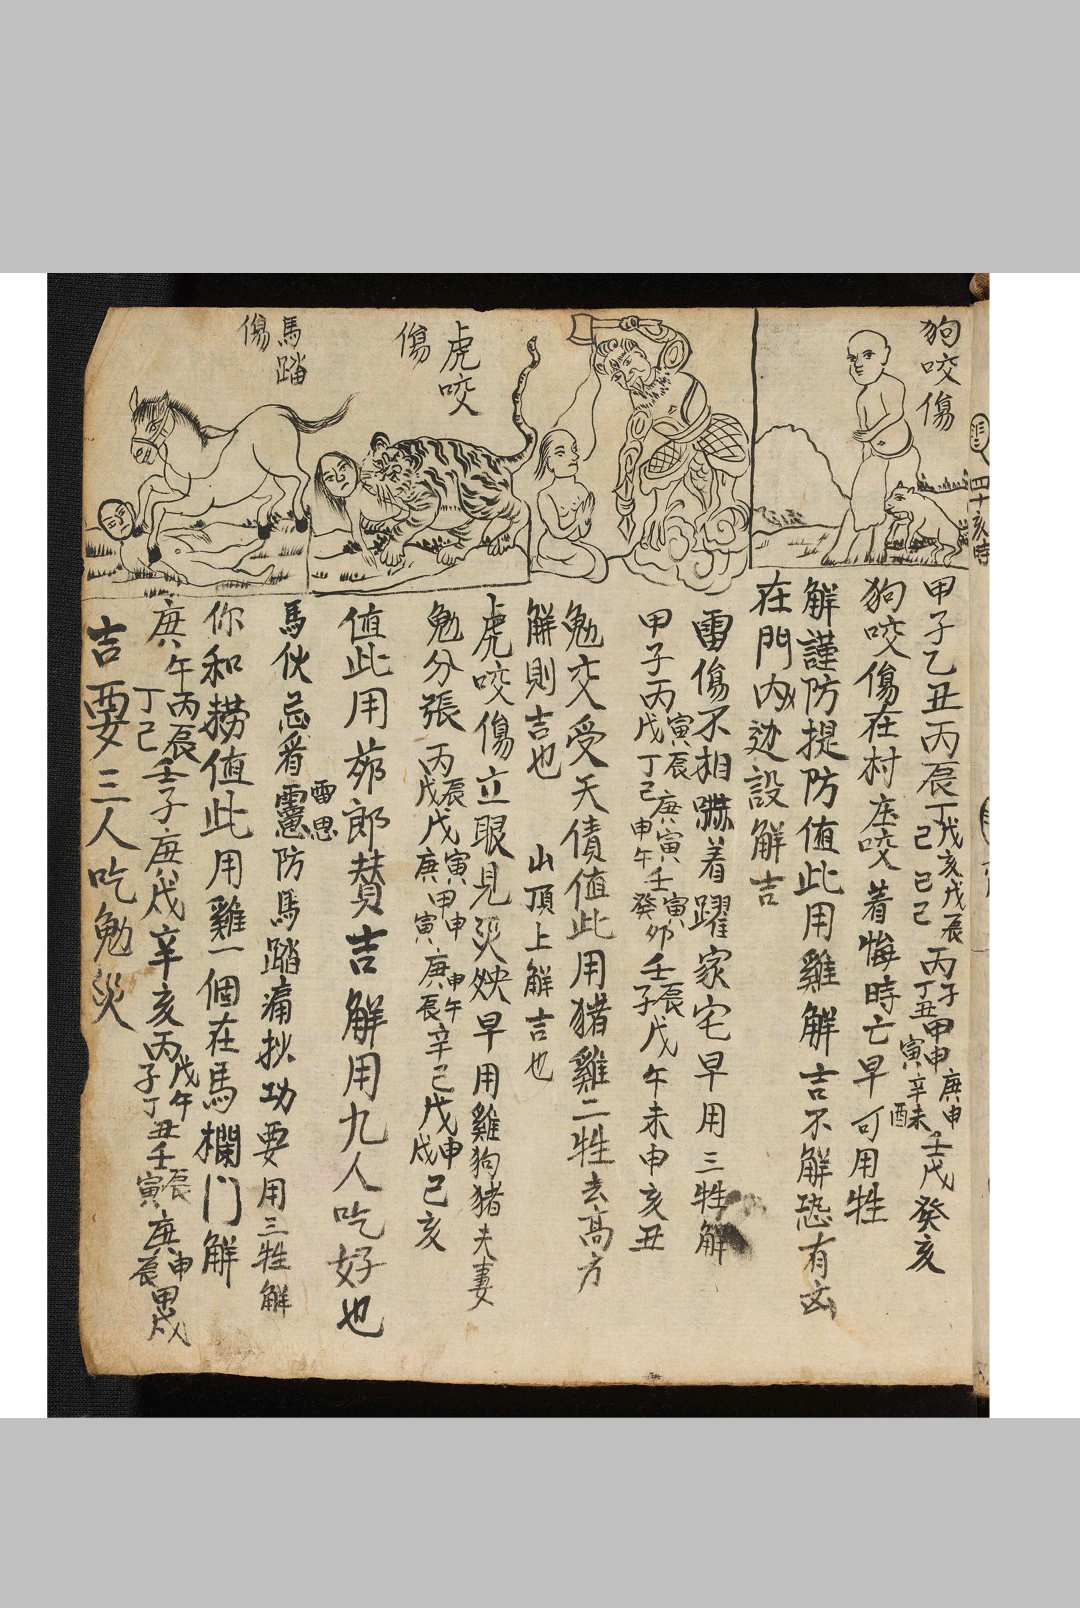 狗咬傷
虎咬傷
馬踏傷
四十亥時
甲子乙丑丙辰丁己戊亥戊辰己己丙子丁丑甲申寅庚申辛未酉壬戌癸亥
狗咬傷在村庄咬着悔時亡早可用牲
解謹防提防值此用雞解吉不解恐有
在門內边設解吉
雷傷不相 着躍家宅早用三牲解
甲子丙寅戊辰丁己庚寅申午壬寅癸卯壬辰子戊午未申亥丑
勉交受天債值此用猪雞二牲去高方
解則吉也 山頂上解吉也
虎咬傷立眼見災殃早用雞狗猪夫妻
勉分張丙辰戊戊寅庚甲申寅庚申午辰辛己戊申戍己亥
值此用茆郎賛吉解用九人吃好也
馬伙忌看靈雷思防馬踏痛扙功要用三牲解
你和撈值此用雞一個在馬欄门解
庚午丙辰丁己壬子庚戍辛亥丙子戊午丁丑壬辰寅庚申辰甲戍
吉要三人吃勉災